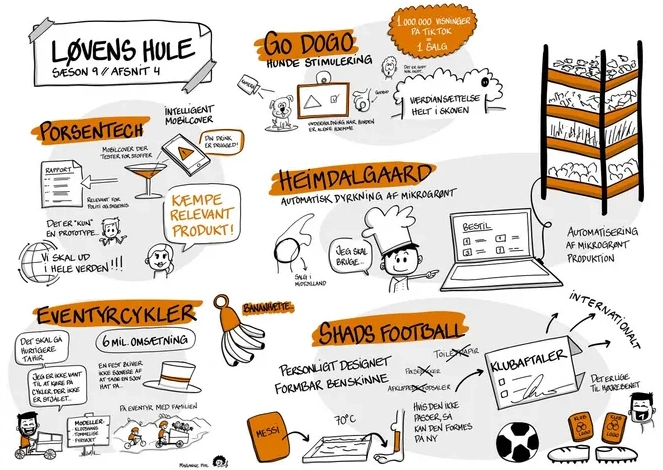 LØVENS HULE
SÆSON 9 // AFSNIT 4
GO DOGO
HUNDE STIMULERING
1 000 000 VISNINGER
PÅ TIKTOK
=
1 SALG
KAMERA
GODBID
UNDERHOLDNING NÅR HUNDEN
ER ALENE HJEMME
VÆRDIANSÆTTELSE
HELT I SKOVEN
PORSENTECH
INTELLIGENT
MOBILCOVER
MOBILCOVER DER
TESTER FOR STOFFER
DIN DRINK
ER DRUGGED!
RAPPORT
RELEVANT FOR
POLITI OG SYGEHUS
KÆMPE
RELEVANT
PRODUKT!
DET ER "KUN"
EN PROTOTYPE...
VI SKAL UD
I HELE VERDEN!!!
HEIMDALGAARD
AUTOMATISK DYRKNING AF MIKROGRØNT
SALG I
MIDTJYLLAND
JEG SKAL
BRUGE...
BESTIL
AUTOMATISERING
AF MIKROGRØNT
PRODUKTION
EVENTYRCYKLER
BANANHÆTTE
DET SKAL GÅ
HURTIGERE
TAHIR
6 MIL. OMSÆTNING
JEG ER IKKE VANT
TIL AT KØRE PÅ
CYKLER DER IKKE
ER STJÅLET...
EN FEST BLIVER
IKKE SJOVERE AF
AT TAGE EN SJOV
HAT PÅ...
MODELLER:
KLODSHANS
TOMMELISE
FYRTØJET
PÅ EVENTYR MED FAMILIEN
SHADS FOOTBALL
PERSONLIGT DESIGNET
FORMBAR BENSKINNE
TOILETPAPIR
HVIS DEN IKKE
PASSER, SÅ
KAN DEN FORMES
PÅ NY
MESSI
70°C
KLUBAFTALER
INTERNATIONALT
DET ER LIGE
TIL HØJREBENET
KLUB
LOGO
KLUB
LOGO